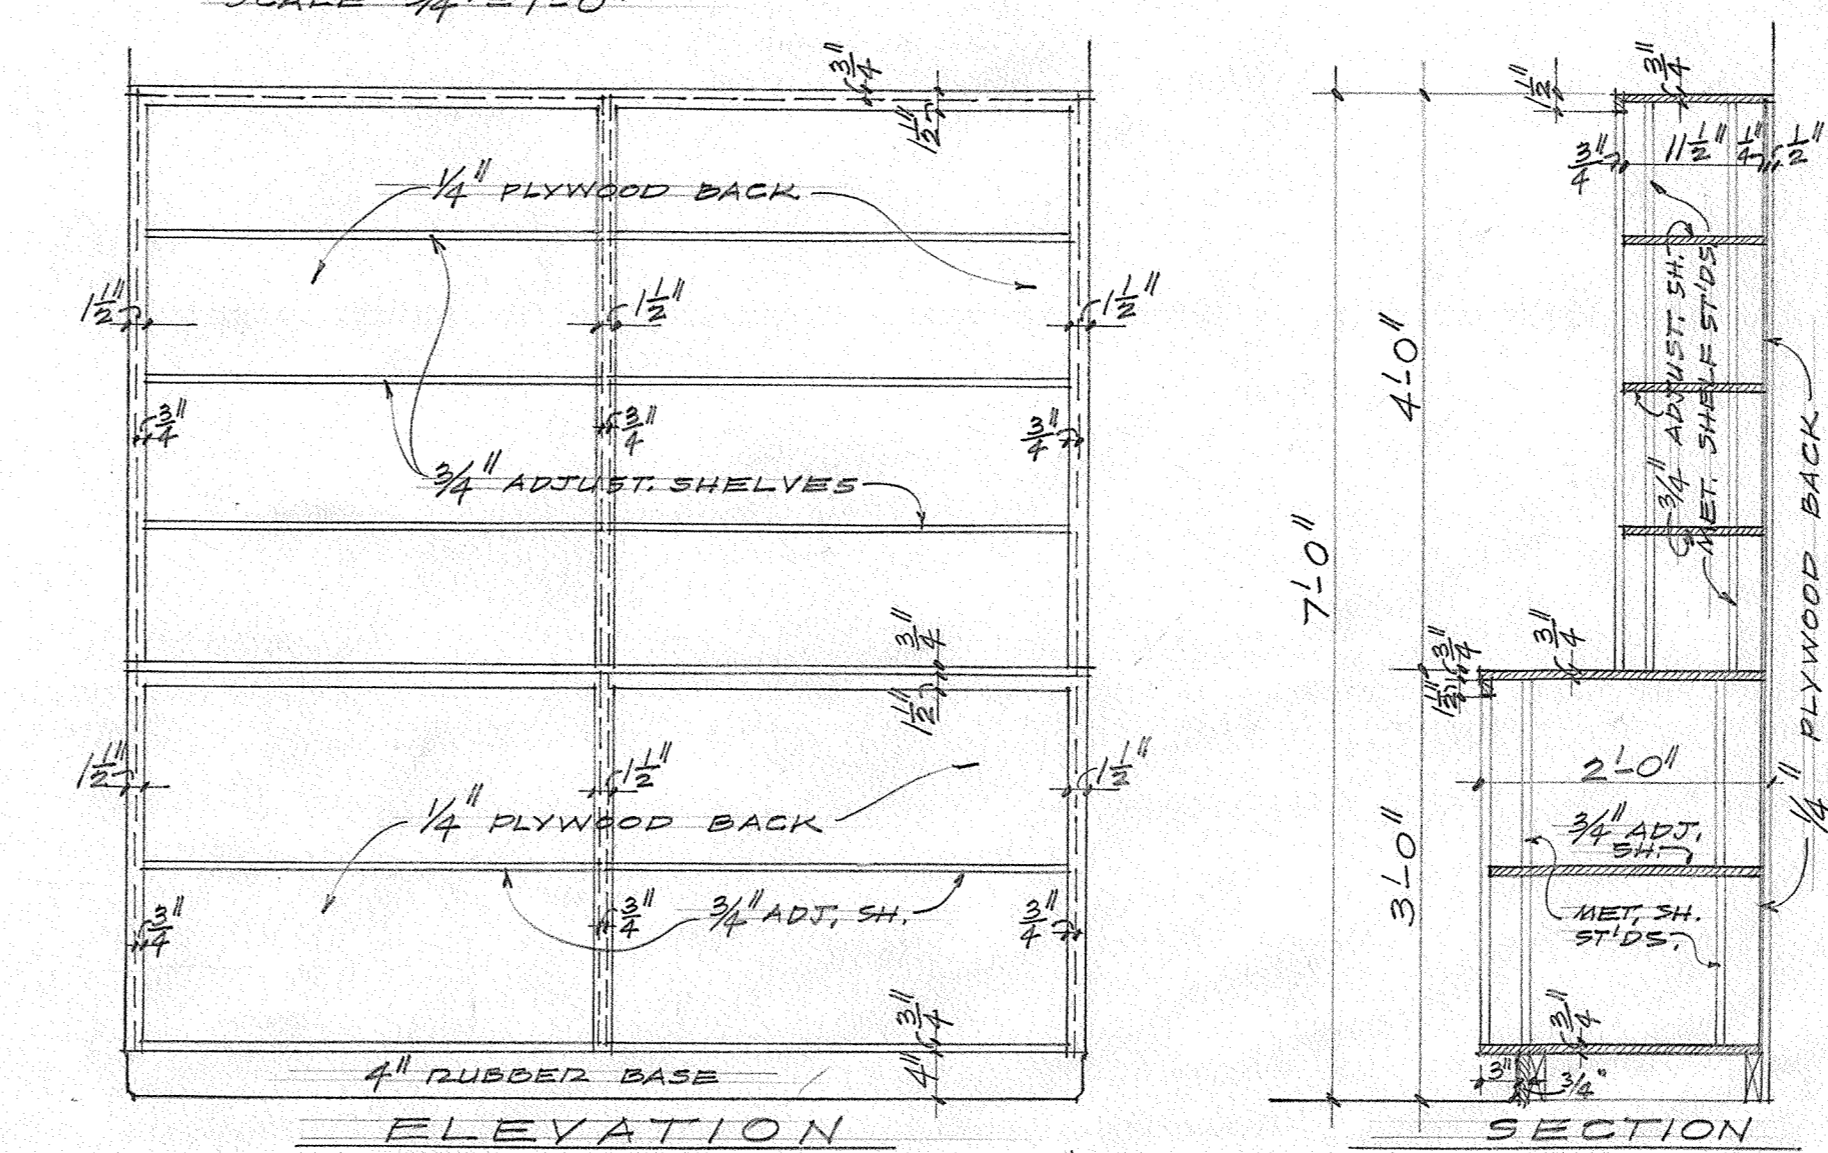 SCALE 3/4" = 1'-0"
3/4"
1 1/2"
1/4" PLYWOOD BACK
1 1/2"
1 1/2"
1 1/2"
3/4"
3/4"
3/4"
3/4" ADJUST. SHELVES
3/4"
1 1/2"
1 1/2"
1 1/2"
1 1/2"
1/4" PLYWOOD BACK
3/4"
3/4"
3/4" ADJ. SH.
3/4"
3/4"
4" RUBBER BASE
4"
ELEVATION
1 1/2"
3/4"
3/4"
11 1/2"
1/4"
1/2"
3/4" ADJUST. SH.
MET. SHELF ST'DS.
4'-0"
7'-0"
1/4" PLYWOOD BACK
3/4"
1 1/2"
3/4"
2'-0"
3'-0"
3/4" ADJ.
SH.
MET. SH.
ST'DS.
3/4"
3"
3/4"
SECTION